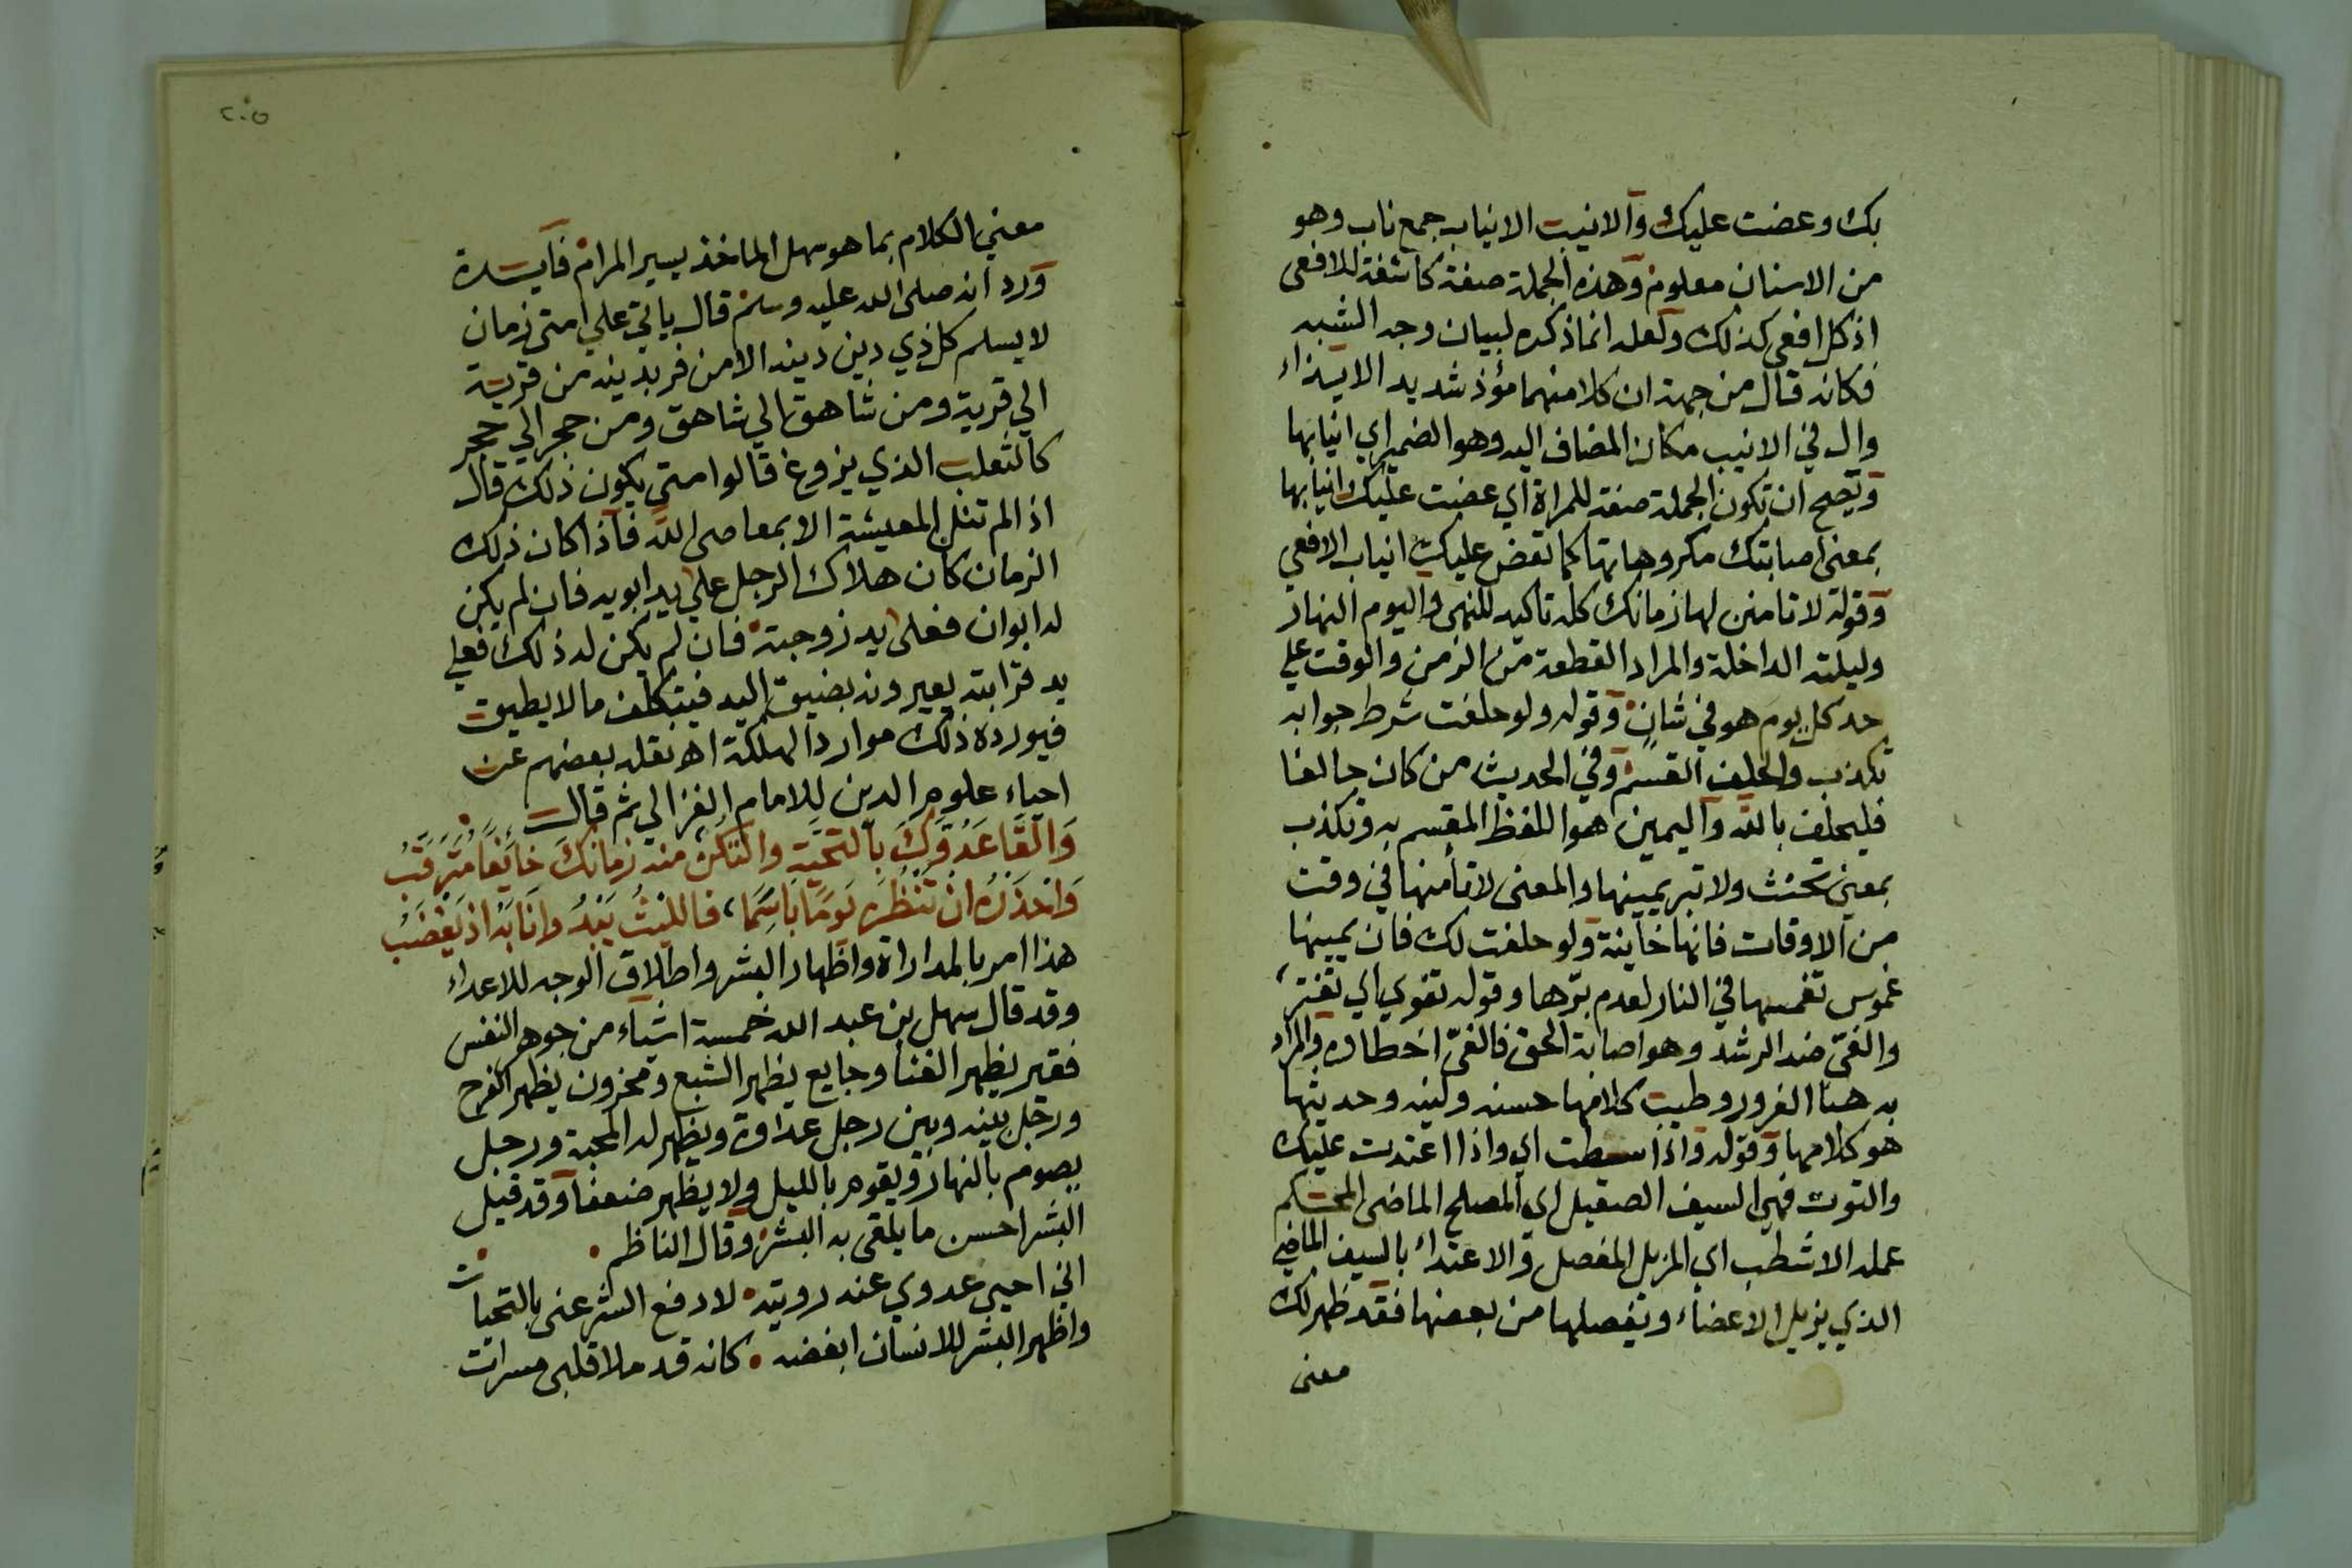 بك وعضت عليك والانيب الانياب جمع ناب وهو
من الاسنان معلوم وهذه الجملة صفة كاشفة للافعى
اذ كل افعى كذلك ولعله انما ذكره لبيان وجه الشبه
فكانه قال من جهة ان كلا منهما مؤذ شديد الايذاء
وال في الانيب مكان المضاف اليه وهو الضمير اي انيابها
ويصح ان تكون الجملة صفة للمراة اي عضت عليك انيابها
بمعنى اصابتك مكروهاتها كما تعض عليك انياب الافعي
وقوله لا تامنن لها زمانك كله تاكيد للنهى واليوم النهار
وليلته الداخلة والمراد القطعة من الزمن والوقت علي
حد كل يوم هو في شان وقوله ولو حلفت شرط جوابه
تكذب والحلف القسم وفي الحديث من كان حالفا
فليحلف بالله واليمين هو اللفظ المقسم به وتكذب
بمعني تحنث ولا تبر يمينها والمعنى لا تأمنها في وقت
من الاوقات فانها خاينة ولو حلفت لك فان يمينها
غموس تغمسها في النار لعدم برّها وقوله تغوي اي تفتر
والغىّ ضد الرشد وهو اصابة الحق فالغىّ اخطاؤه والمراد
به هنا الغرور وطيب كلامها حسنه ولينه وحديثها
هو كلامها وقوله واذا سطت اي واذا اعتدت عليك
والتوت فهي السيف الصقيل اي المصلح الماضى المحتكم
عمله الاشطب اي المزيل المفصل والاعتداء بالسيف الماضي
الذي يزيل الاعضاء ويفصلها من بعضها فقد ظهر لك
معنى
٢٠٥
معني الكلام بما هو سهل الماخذ يسير المرام فايدة
ورد انه صلى الله عليه وسلم قال ياتي علي امتى زمان
لا يسلم كل ذي دين دينه الا من فر بدينه من قرية
الي قرية ومن شاهق الي شاهق ومن حجر الي حجر
كالثعلب الذي يزوغ قالوا متي يكون ذلك قال
اذا لم تنل المعيشة الا بمعاصى الله فاذا كان ذلك
الزمان كان هلاك الرجل علي يد ابويه فان لم يكن
له ابوان فعلى يد زوجته فان لم يكن له ذلك فعلي
يد قرابته يعيرونه بضيق اليد فيتكلف ما لا يطيق
فيورده ذلك موارد الهلكة اه نقله بعضهم عن
احياء علوم الدين للامام الغزالي ثم قال
وَالْقَ عَدُوَّكَ بالتحيّةِ والتكن منه زمانكَ خائفا مترقب
وَاحذَرْه ان تنظره يَومًا باسِمًا، فالليثُ يبْدُ وانَابَهُ اذ يَغْضَبُ
هذا امر بالمداراة واظهار البشر واطلاق الوجه للاعداء
وقد قال سهل بن عبد الله خمسة اشياء من جوهر النفس
فقير يظهر الغنا وجايع يظهر الشبع ومحزون يظهر الفرح
ورجل بينه وبين رجل عداوة ويظهر له المحبة ورجل
يصوم بالنهار ويقوم بالليل ولا يظهر ضعفا وقد قيل
البشر احسن ما يلقى به البشر وقال الناظم
اني احيي عدوي عند رويته لادفع الشر عنى بالتحيات
واظهر البشر للانسان ابغضه كانه قد ملا قلبى مسرات